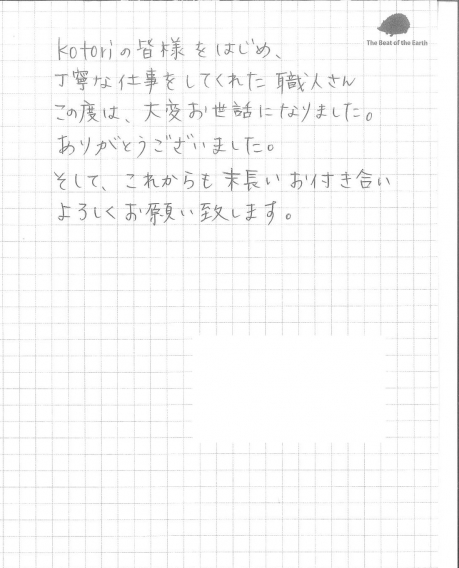 The Beat of the Earth
kotoriの皆様をはじめ、
丁寧な仕事をしてくれた職人さん
この度は、大変お世話になりました。
ありがとうございました。
そして、これからも末長いお付き合い
よろしくお願い致します。